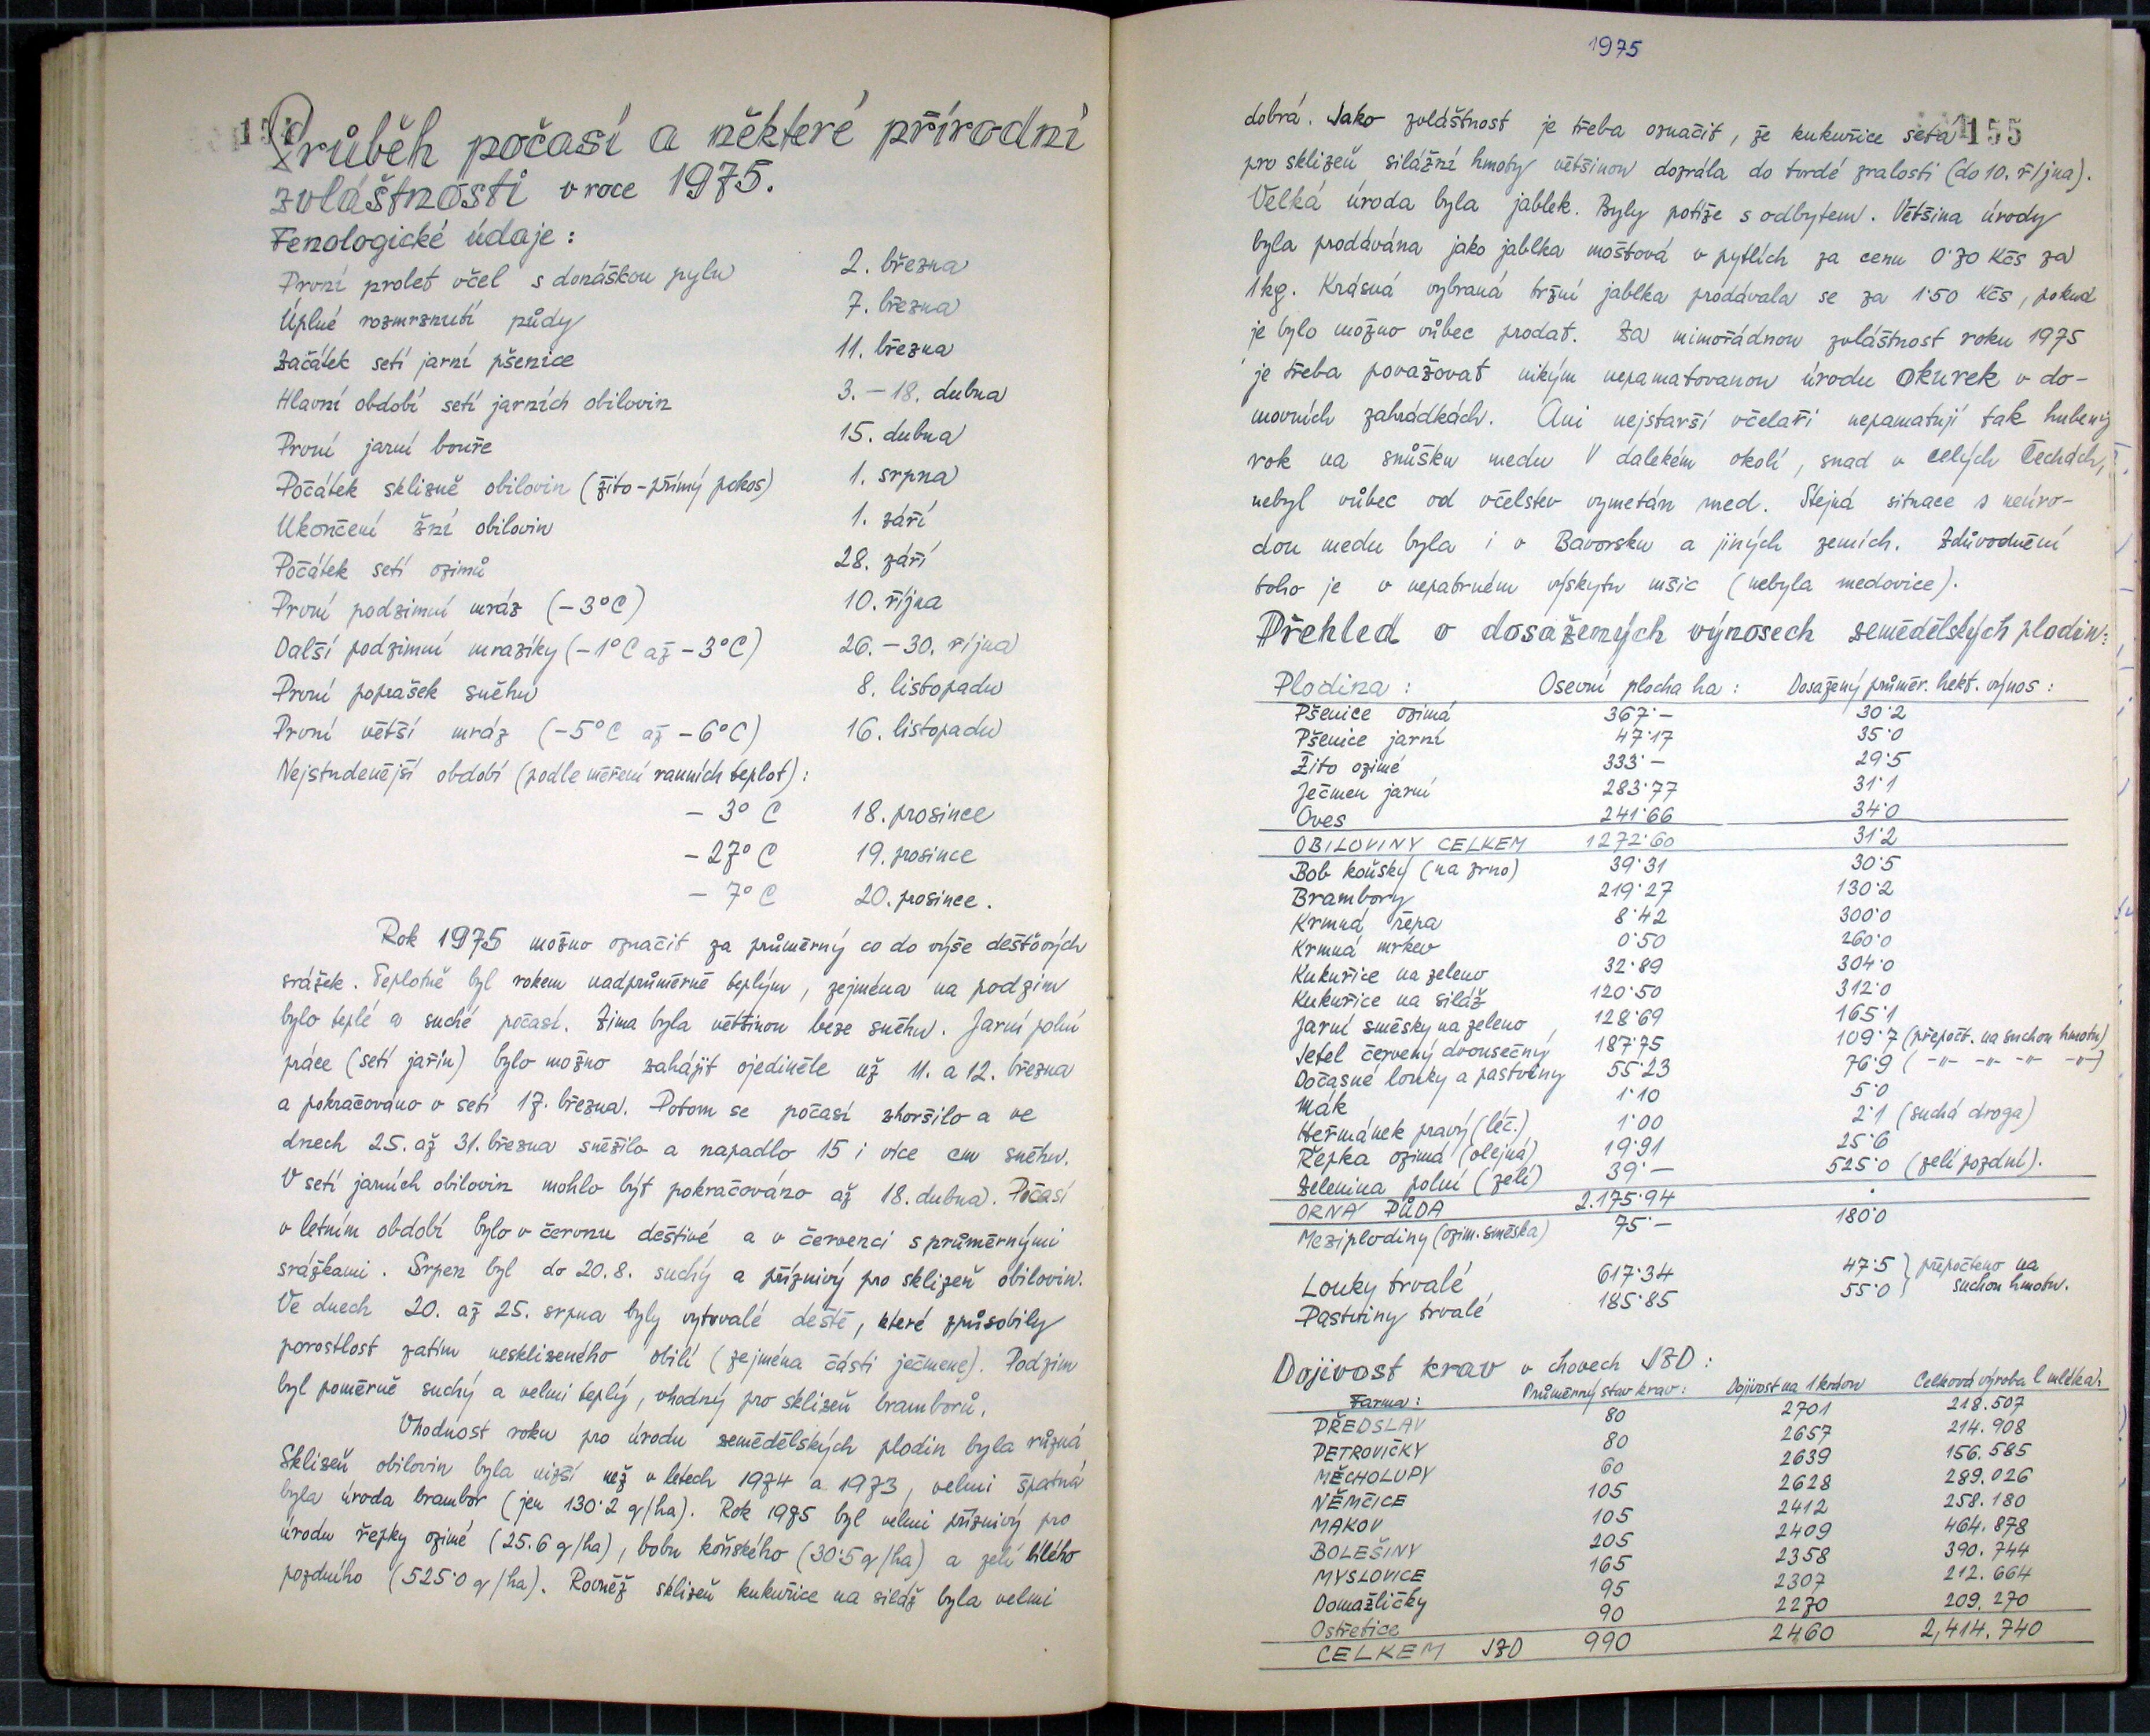 Průběh počasí a některé přírodní
zvláštnosti v roce 1975.
Fenologické údaje:
První prolet včel s donáškou pylu 2. března
Úplné rozmrznutí půdy 7. března
Začátek setí jarní pšenice 11. března
Hlavní období setí jarních obilovin 3. – 18. dubna
První jarní bouře 15. dubna
Počátek sklizně obilovin (žito - přímý pokos) 1. srpna
Ukončení žní obilovin 1. září
Počátek setí ozimů 28. září
První podzimní mráz (-3°C) 10. října
Další podzimní mrazíky (-1°C až -3°C) 26. – 30. října
První poprašek sněhu 8. listopadu
První větší mráz (-5°C až -6°C) 16. listopadu
Nejstudenější období (podle měření ranních teplot):
- 3° C 18. prosince
- 27° C 19. prosince
- 7° C 20. prosince.
Rok 1975 možno označit za průměrný co do výše dešťových
srážek. Teplotně byl rokem nadprůměrně teplým, zejména na podzim
bylo teplé a suché počasí. Zima byla většinou beze sněhu. Jarní polní
práce (setí jařin) bylo možno zahájit ojediněle už 11. a 12. března
a pokračováno v setí 17. března. Potom se počasí zhoršilo a ve
dnech 25. až 31. března sněžilo a napadlo 15 i více cm sněhu.
V setí jarních obilovin mohlo být pokračováno až 18. dubna. Počasí
v letním období bylo v červnu deštivé a v červenci s průměrnými
srážkami. Srpen byl do 20.8. suchý a příznivý pro sklizeň obilovin.
Ve dnech 20. až 25. srpna byly vytrvalé deště, které způsobily
porostlost zatím nesklizeného obilí (zejména části ječmene). Podzim
byl poměrně suchý a velmi teplý, vhodný pro sklizeň bramborů.
Vhodnost roku pro úrodu zemědělských plodin byla různá
Sklizeň obilovin byla nižší než v letech 1974 a 1973, velmi špatná
byla úroda brambor (jen 130·2 q/ha). Rok 1975 byl velmi příznivý pro
úrodu řepky ozimé (25.6 q/ha), bobu koňského (30·5 q/ha) a zelí bílého
pozdního (525·0 q/ha). Rovněž sklizeň kukuřice na siláž byla velmi
1975
155
dobrá. Jako zvláštnost je třeba označit, že kukuřice setá
pro sklizeň silážní hmoty většinou dozrála do tvrdé zralosti (do 10. října).
Velká úroda byla jablek. Byly potíže s odbytem. Většina úrody
byla prodávána jako jablka moštová v pytlích za cenu 0·70 Kčs za
1 kg. Krásná vybraná tržní jablka prodávala se za 1·50 Kčs, pokud
je bylo možno vůbec prodat. Za mimořádnou zvláštnost roku 1975
je třeba považovat nikým nepamatovanou úrodu okurek v do-
movních zahrádkách. Ani nejstarší včelaři nepamatují tak hubený
rok na snůšku medu V dalekém okolí, snad v celých Čechách,
nebyl vůbec od včelstev vymetán med. Stejná situace s neúro-
dou medu byla i v Bavorsku a jiných zemích. Zdůvodnění
toho je v nepatrném výskytu mšic (nebyla medovice).
Přehled o dosažených výnosech zemědělských plodin:
Plodina: Osevní plocha ha: Dosažený průměr. hekt. výnos:
Pšenice ozimá 367·– 30·2
Pšenice jarní 47·17 35·0
Žito ozimé 333·– 29·5
Ječmen jarní 283·77 31·1
Oves 241·66 34·0
OBILOVINY CELKEM 1272·60 31·2
Bob koňský (na zrno) 39·31 30·5
Brambory 219·27 130·2
Krmná řepa 8·42 300·0
Krmná mrkev 0·50 260·0
Kukuřice na zeleno 32·89 304·0
Kukuřice na siláž 120·50 312·0
Jarní směsky na zeleno 128·69 165·1
Jetel červený dvousečný 187·75 109·7 (přepočt. na suchou hmotu)
Dočasné louky a pastviny 55·23 76·9 ( -"- -"- -"- -"-)
Mák 1·10 5·0
Heřmánek pravý (léč.) 1·00 2·1 (suchá droga)
Řepka ozimá (olejná) 19·91 25·6
Zelenina polní (zelí) 39·– 525·0 (zelí pozdní).
ORNÁ PŮDA 2.175·94
Meziplodiny (ozim. směska) 75·– 180·0
Louky trvalé 617·34 47·5 } přepočteno na
Pastviny trvalé 185·85 55·0 } suchou hmotu.
Dojivost krav v chovech JZD:
Farma: Průměrný stav krav: Dojivost na 1 krávu Celková výroba l mléka:
PŘEDSLAV 80 2701 218.507
PETROVIČKY 80 2657 214.908
MĚCHOLUPY 60 2639 156.585
NĚMČICE 105 2628 289.026
MAKOV 105 2412 258.180
BOLEŠINY 205 2409 464.878
MYSLOVICE 165 2358 390.744
Domažličky 95 2307 212.664
Ostřetice 90 2270 209.270
CELKEM JZD 990 2460 2,414.740